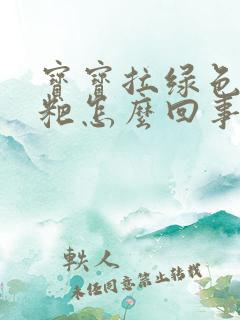 寶寶拉綠色
粑怎麼回事
軼人
未經同意禁止轉載